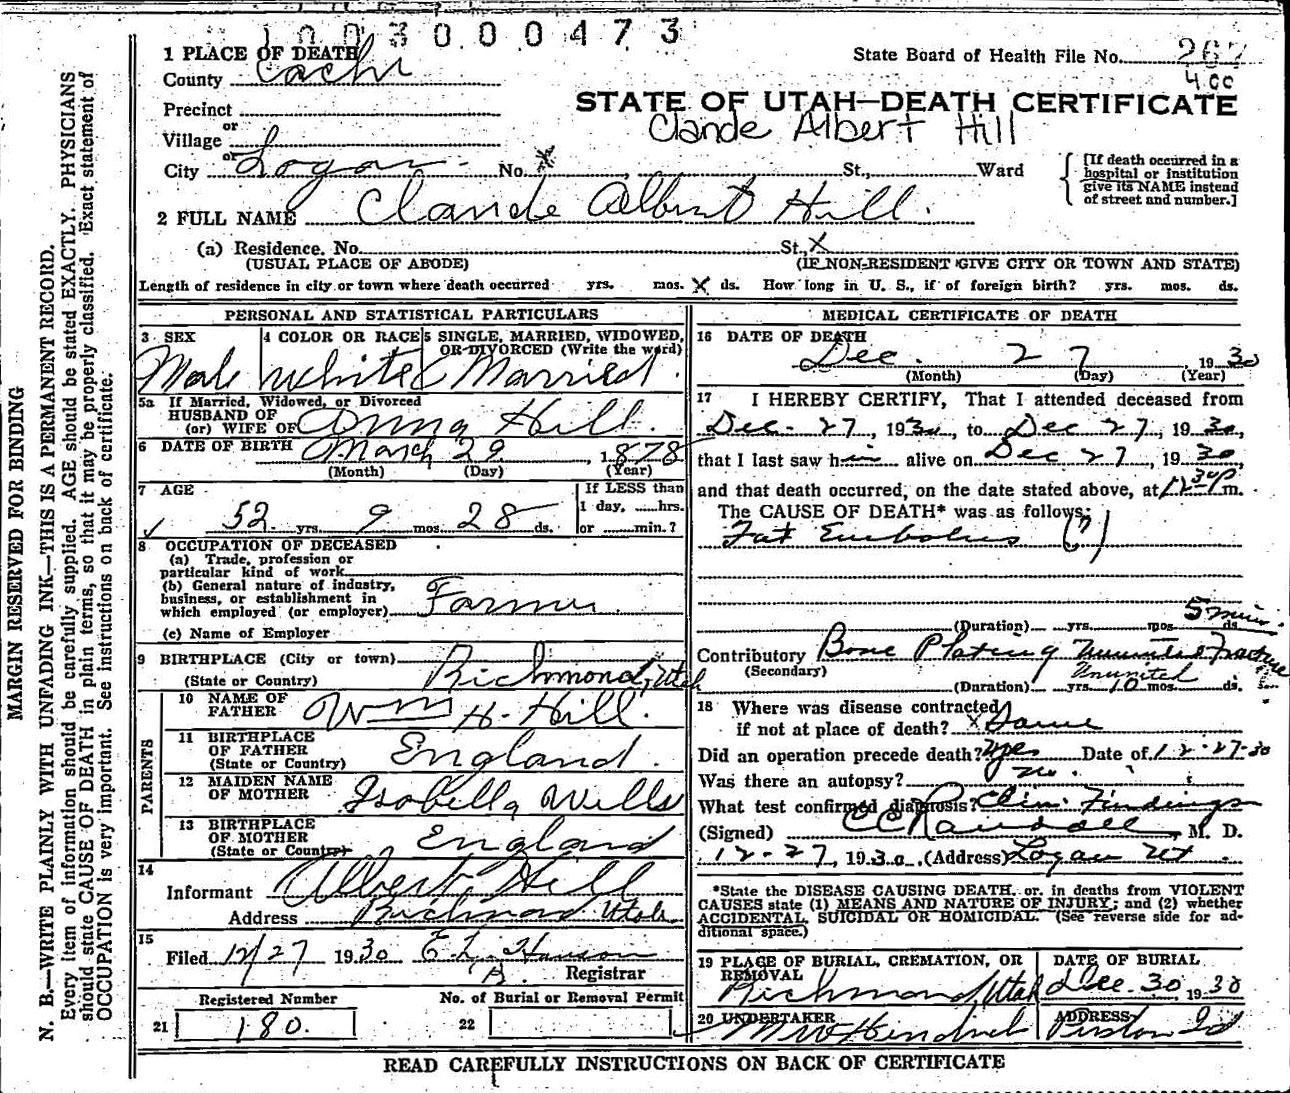 1003000473
1 PLACE OF DEATH
County Cache
State Board of Health File No. 267
400
Precinct
STATE OF UTAH—DEATH CERTIFICATE
Claude Albert Hill
or
Village
or
City Logan No. x St., Ward
[If death occurred in a
hospital or institution
give its NAME instead
of street and number.]
2 FULL NAME Claude Albert Hill.
(a) Residence. No. St., X
(USUAL PLACE OF ABODE) (IF NON-RESIDENT GIVE CITY OR TOWN AND STATE)
Length of residence in city or town where death occurred yrs. mos. X ds. How long in U. S., if of foreign birth? yrs. mos. ds.
PERSONAL AND STATISTICAL PARTICULARS
3 SEX 4 COLOR OR RACE 5 SINGLE, MARRIED, WIDOWED,
OR DIVORCED (Write the word)
Male White Married.
5a If Married, Widowed, or Divorced
HUSBAND OF
(or) WIFE OF Anna Hill.
6 DATE OF BIRTH March 29, 1878
(Month) (Day) (Year)
7 AGE If LESS than
1 day, ......hrs.
52 yrs. 9 mos. 28 ds. or ......min.?
8 OCCUPATION OF DECEASED
(a) Trade, profession or
particular kind of work
(b) General nature of industry,
business, or establishment in
which employed (or employer) Farmer.
(c) Name of Employer
9 BIRTHPLACE (City or town)
(State or Country) Richmond, Utah
PARENTS
10 NAME OF
FATHER Wm H. Hill.
11 BIRTHPLACE
OF FATHER
(State or Country) England.
12 MAIDEN NAME
OF MOTHER Isabella Wills
13 BIRTHPLACE
OF MOTHER
(State or Country) England
14
Informant Albert Hill
Address Richmond Utah
15
Filed 12/27 1930 E.L. Hanson
Registrar
Registered Number No. of Burial or Removal Permit
21 180. 22
MEDICAL CERTIFICATE OF DEATH
16 DATE OF DEATH
Dec. 27 1930
(Month) (Day) (Year)
17 I HEREBY CERTIFY, That I attended deceased from
Dec. 27, 1930, to Dec 27, 1930,
that I last saw him alive on Dec 27, 1930,
and that death occurred, on the date stated above, at 12 30 p m.
The CAUSE OF DEATH* was as follows:
Fat Embolus (?)
5 mins.
(Duration) yrs. mos ds.
Contributory Bone Plating Ununited Fracture
(Secondary) Ununited
(Duration) yrs. 10 mos. ds.
18 Where was disease contracted
if not at place of death? x Same
Did an operation precede death? yes Date of 12-27-30
Was there an autopsy? no.
What test confirmed diagnosis? Clin. Findings
(Signed) CC Randall M. D.
12-27, 1930. (Address) Logan Ut
*State the DISEASE CAUSING DEATH. or. in deaths from VIOLENT
CAUSES state (1) MEANS AND NATURE OF INJURY; and (2) whether
ACCIDENTAL, SUICIDAL OR HOMICIDAL. (See reverse side for ad-
ditional space.)
19 PLACE OF BURIAL, CREMATION, OR
REMOVAL
Richmond, Utah
DATE OF BURIAL
Dec. 30, 1930
20 UNDERTAKER
ADDRESS
Preston Id
READ CAREFULLY INSTRUCTIONS ON BACK OF CERTIFICATE
MARGIN RESERVED FOR BINDING
N. B.—WRITE PLAINLY WITH UNFADING INK—THIS IS A PERMANENT RECORD.
Every item of information should be carefully supplied. AGE should be stated EXACTLY. PHYSICIANS
should state CAUSE OF DEATH in plain terms, so that it may be properly classified. Exact statement of
OCCUPATION is very important. See instructions on back of certificate.